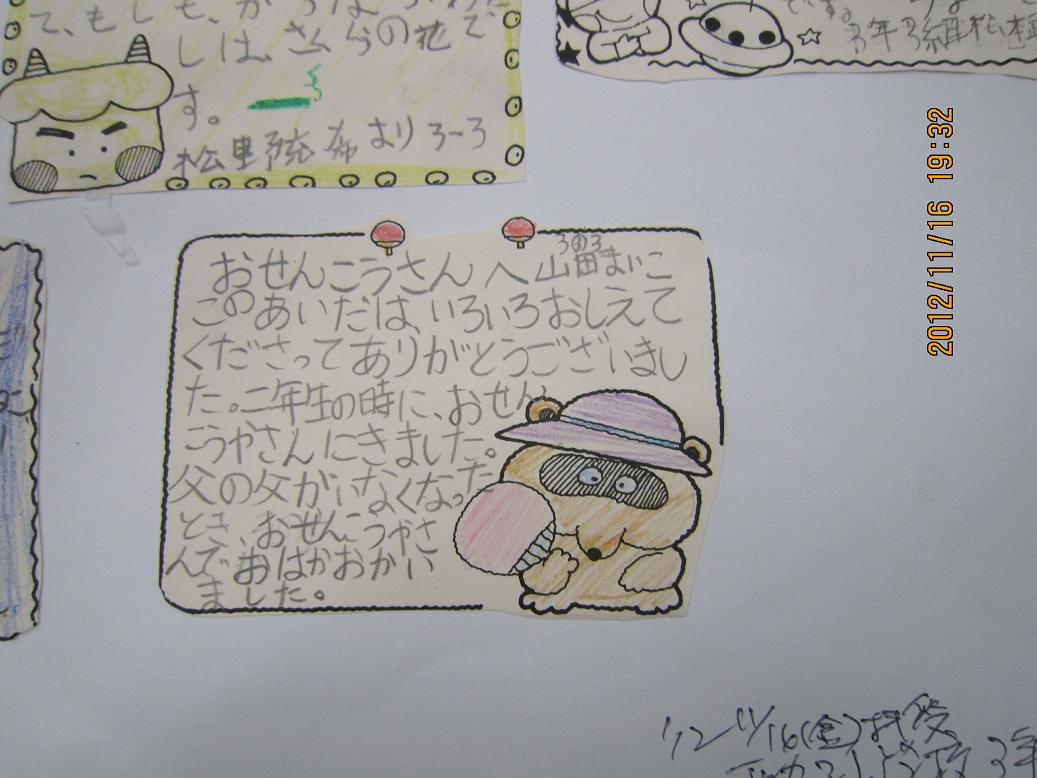 しは、さくらの花で
す。
より3-3
です。
3年3組松
2012/11/16 19:32
3の3
おせんこうさんへ 山田まいこ
このあいだは、いろいろおしえて
くださってありがとうございまし
た。二年生の時に、おせん
こうやさんにきました。
父の父がいなくなった
とき、おせんこうやさ
んでおはかおかい
ました。
'12 11/16(金)授
3年